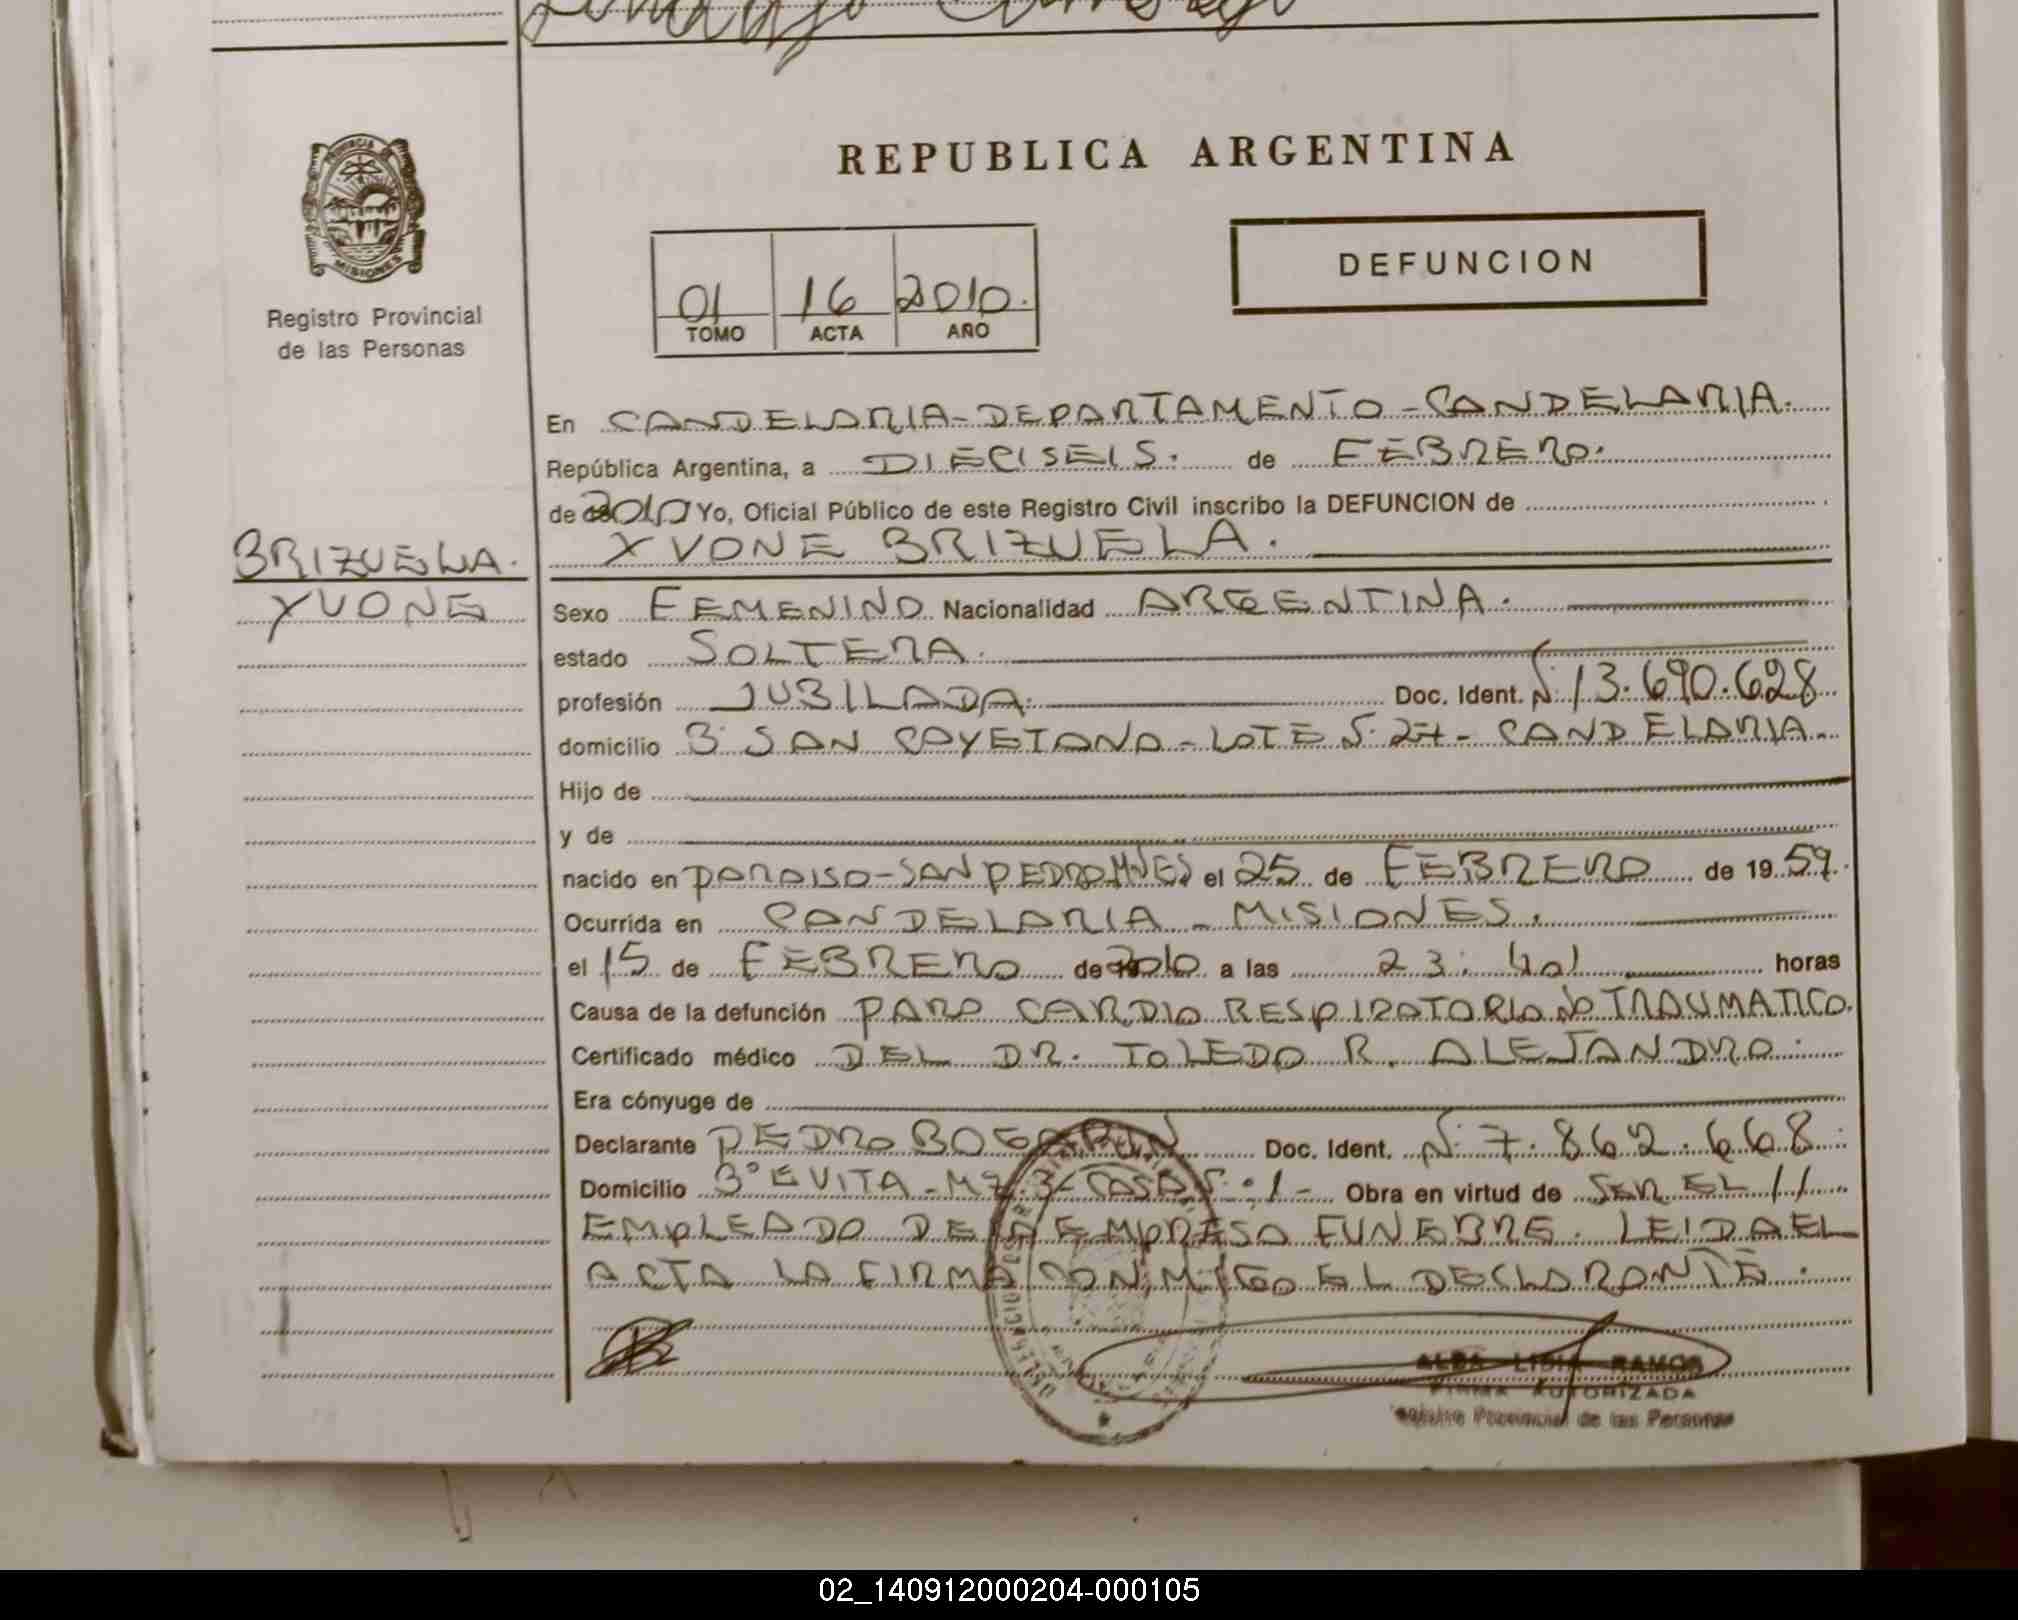 PROVINCIA DE
MISIONES
Registro Provincial
de las Personas
REPUBLICA ARGENTINA
DEFUNCION
01 16 2010.
TOMO ACTA AÑO
En CANDELARIA-DEPARTAMENTO-CANDELARIA.
República Argentina, a DIECISEIS. de FEBRERO.
de 2010 Yo, Oficial Público de este Registro Civil inscribo la DEFUNCION de
BRIZUELA.
YVONE
YVONE BRIZUELA.
Sexo FEMENINO Nacionalidad ARGENTINA.
estado SOLTERA.
profesión JUBILADA. Doc. Ident. Nº 13.690.628
domicilio Bº SAN CAYETANO-LOTE Nº 27- CANDELARIA.
Hijo de
y de
nacido en PARAISO-SAN PEDRO MNES el 25 de FEBRERO de 1959.
Ocurrida en CANDELARIA - MISIONES.
el 15 de FEBRERO de 2010 a las 23: 40 horas
Causa de la defunción PARO CARDIO RESPIRATORIO NO TRAUMATICO.
Certificado médico DEL DR. TOLEDO R. ALEJANDRO.
Era cónyuge de
Declarante PEDRO BOGARIN Doc. Ident. Nº 7.862.668
Domicilio Bº EVITA-MZ.3-CASA Nº 1- Obra en virtud de SER EL //
EMPLEADO DE LA EMPRESA FUNEBRE. LEIDA EL
ACTA LA FIRMA CONMIGO EL DECLARANTE.
ALBA LIDIA RAMOS
FIRMA AUTORIZADA
Registro Provincial de las Personas
02_140912000204-000105